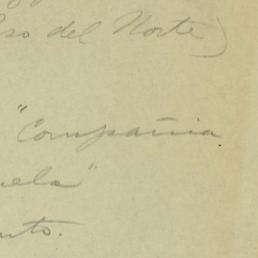 Paso del Norte)
"Compañia
uela"
nto.